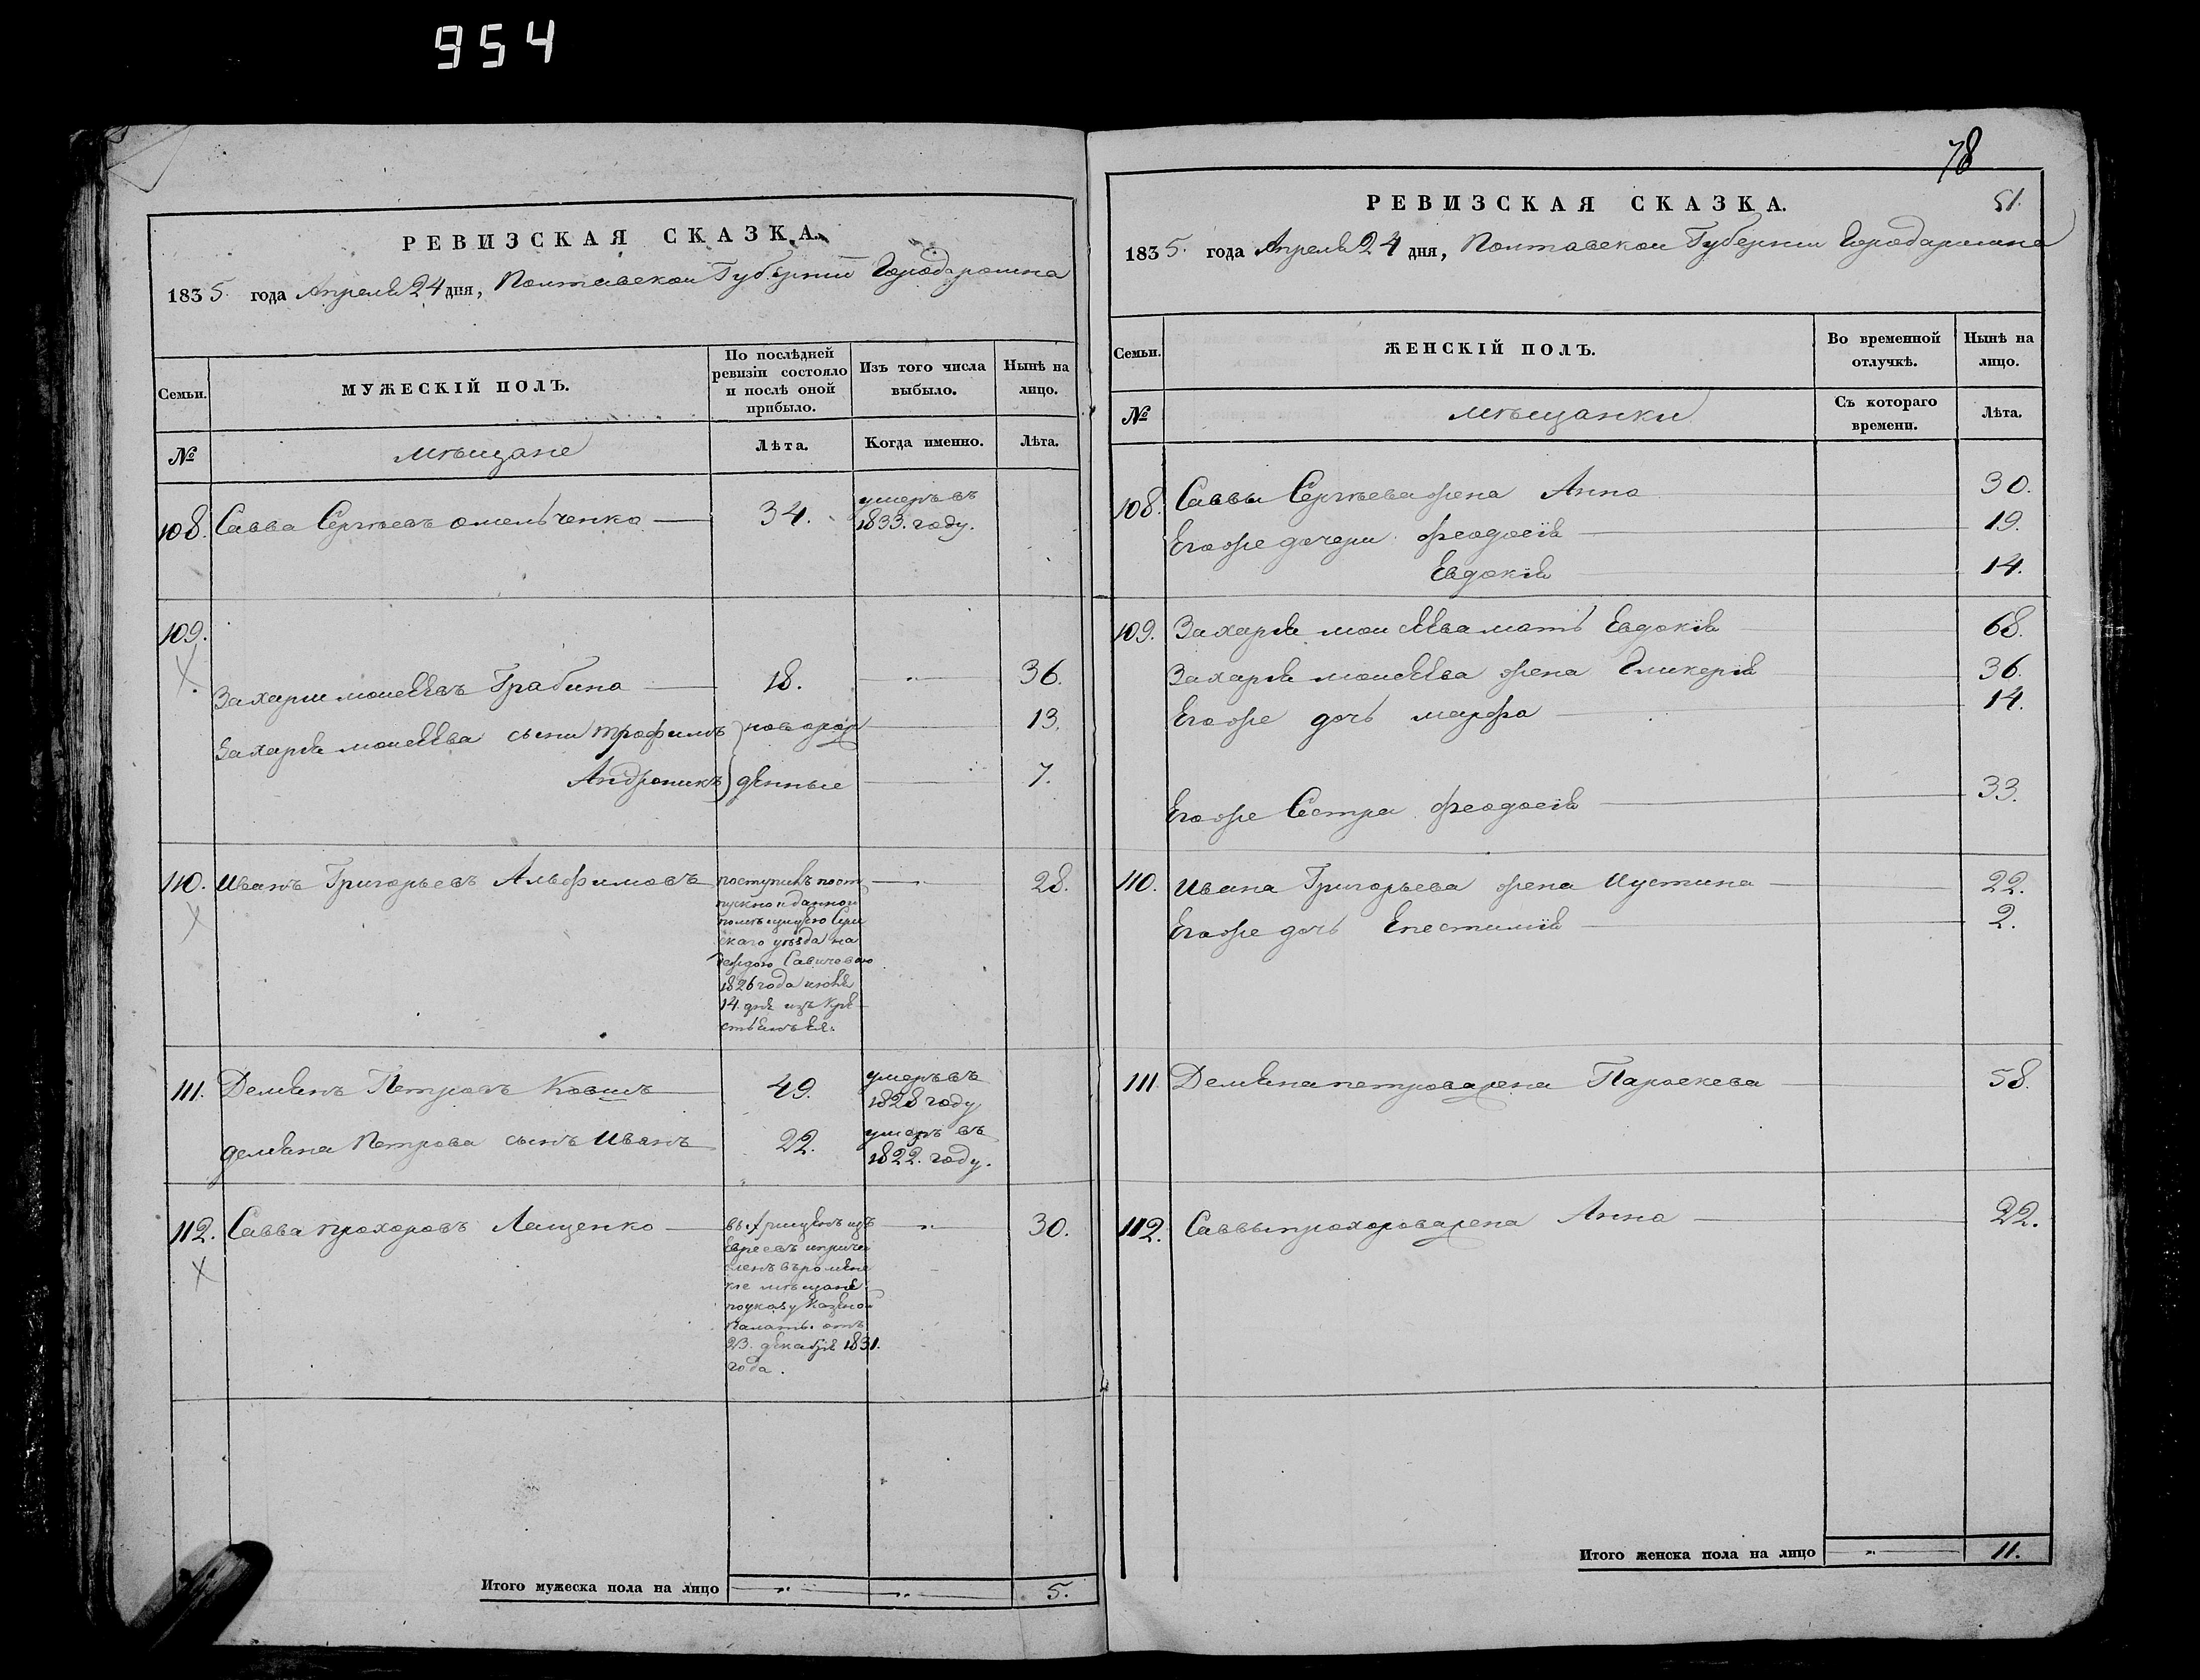 954
РЕВИЗСКАЯ СКАЗКА.
1835. года Апреля 24 дня, Полтавской Губернии Города ромна
Семьи.
МУЖЕСКІЙ ПОЛЪ.
По послѣдней
ревизіи состояло
и послѣ оной
прибыло.
Изъ того числа
выбыло.
Нынѣ на
лицо.
№
мѣщане
Лѣта.
Когда именно.
Лѣта.
108. Савва Сергѣевъ омельченко — 34. умеръ въ
1833. году.
109.
Захарий моисеевъ Грабина — 18. — " — 36.
Захарія моисеева сыны трофимъ } новорож — 13.
Андроникъ } денные — 7.
110. Иванъ Григорьевъ Альфимовъ поступилъ по от — " — 28.
пускной данной
помѣщицею
скаго уѣзда на
деждою Савичевою
1826 года июня
14. дня изъ кре
стьянъ ея.
111. Демянъ Петровъ Ковшъ — 49. умеръ въ
1828 году
демяна Петрова сынъ Иванъ — 22. умеръ въ
1822. году.
112. Савва прохоровъ Лащенко — выкрищенъ изъ — " — 30.
Евреевъ и причи
сленъ въ роменс
кие мѣщане
по указу Казеной
палаты отъ
23. декабря 1831.
года.
Итого мужеска пола на лицо — " — " — 5.
78
РЕВИЗСКАЯ СКАЗКА. 51.
1835. года Апреля 24 дня, Полтавской Губернии Города ромна
Семьи.
ЖЕНСКІЙ ПОЛЪ.
Во временной
отлучкѣ.
Нынѣ на
лицо.
№
мѣщанки
Съ котораго
времени.
Лѣта.
108. Саввы Сергѣева жена Анна 30.
Его же дочери феодосія — 19.
Евдокія 14.
109. Захарія моисеева мать Евдокія 68.
Захарія моисеева жена Гликерія 36.
Его же дочь марфа — 14.
Его же Сестра феодосія — 33.
110. Ивана Григорьева жена Иустина — 22.
Его же дочь Епестимія — 2.
111. Демяна петрова жена Параскева — 58.
112. Саввы прохорова жена Анна — 22.
Итого женска пола на лицо — " — 11.